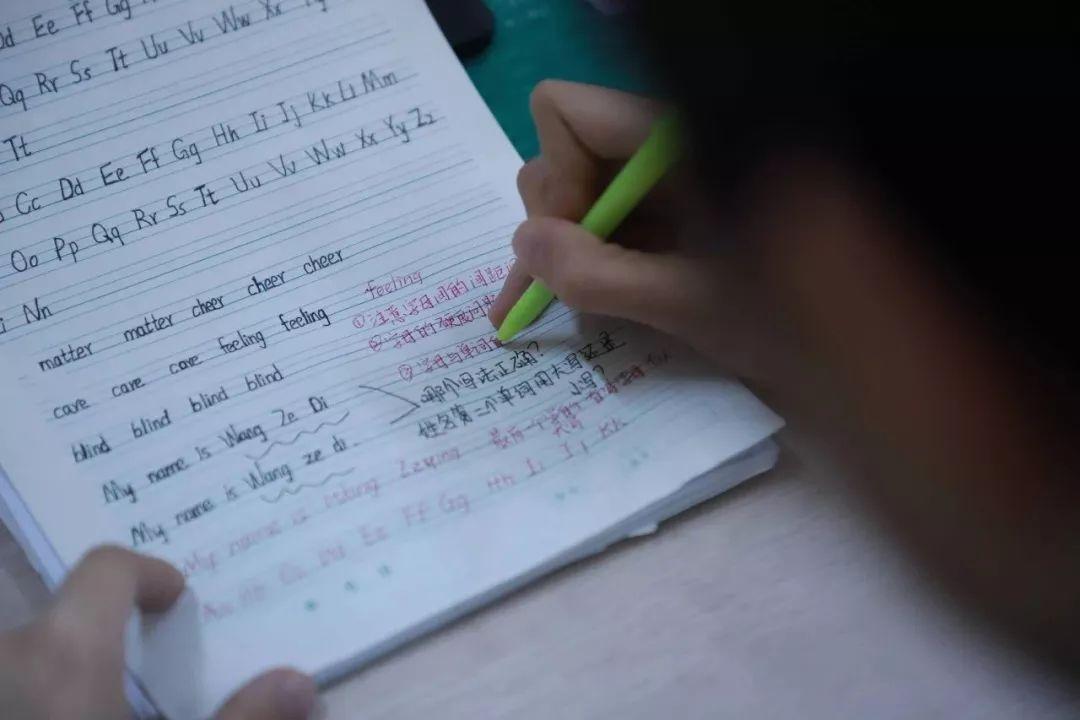 Dd Ee Ff Gg
Qq Rr Ss Tt Uu Vv Ww Xx Yy
Tt
Cc Dd Ee Ff Gg Hh Ii Jj Kk Ll Mm
Oo Pp Qq Rr Ss Tt Uu Vv Ww Xx Yy Zz
Nn
matter matter cheer cheer cheer
care care care feeling feeling feeling
①注意字母间的间距
②字母的
blind blind blind blind
③字母与单词
My name is Wang Ze Di
哪个写法正确?
My name is Wang ze di.
姓名第二个单词用大写还是
小写?
My name is Zeying
Ee Ff Gg Hh Ii Jj Kk